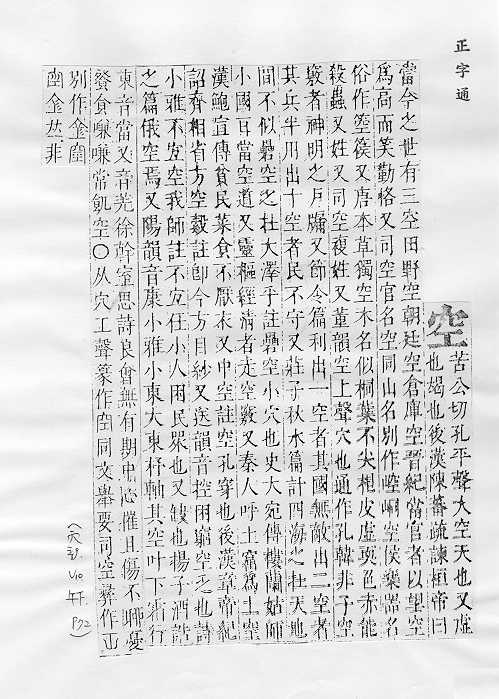 正字通
空
苦公切孔平聲大空天也又虛
也竭也後漢陳蕃疏諫桓帝曰
當今之世有三空田野空朝廷空倉庫空晉紀當官者以望空
爲高而笑勤恪又司空官名空同山名別作崆峒空侯樂器名
俗作箜篌又唐本草獨空木名似桐葉不尖相皮虛爽色赤能
殺蟲又姓又司空複姓又董韻空上聲穴也通作孔韓非子空
竅者神明之戶牖又節令篇利出一空者其國無敵出二空者
其兵半用出十空者民不守又莊子秋水篇計四海之在天地
間不似礨空之在大澤乎註礨空小穴也史大宛傳樓蘭姑師
小國耳當空道又靈樞經清者走空竅又秦人呼土窟爲土空
漢鮑宣傳貧民菜食不厭衣又中空註空孔穿也後漢章帝紀
詔齊相省方空縠註卽今方目紗又送韻音控困窮空乏也詩
小雅不宜空我師註不宜任小人困民衆也又缺也揚子酒誥
之篇俄空焉又陽韻音康小雅小東大東杼軸其空叶下霜行
東音當又音羌徐幹室思詩良會無有期中心摧且傷不聊憂
餐食嗛嗛常飢空〇从穴工聲篆作空同文舉要司空彝作
別作
𠀤非